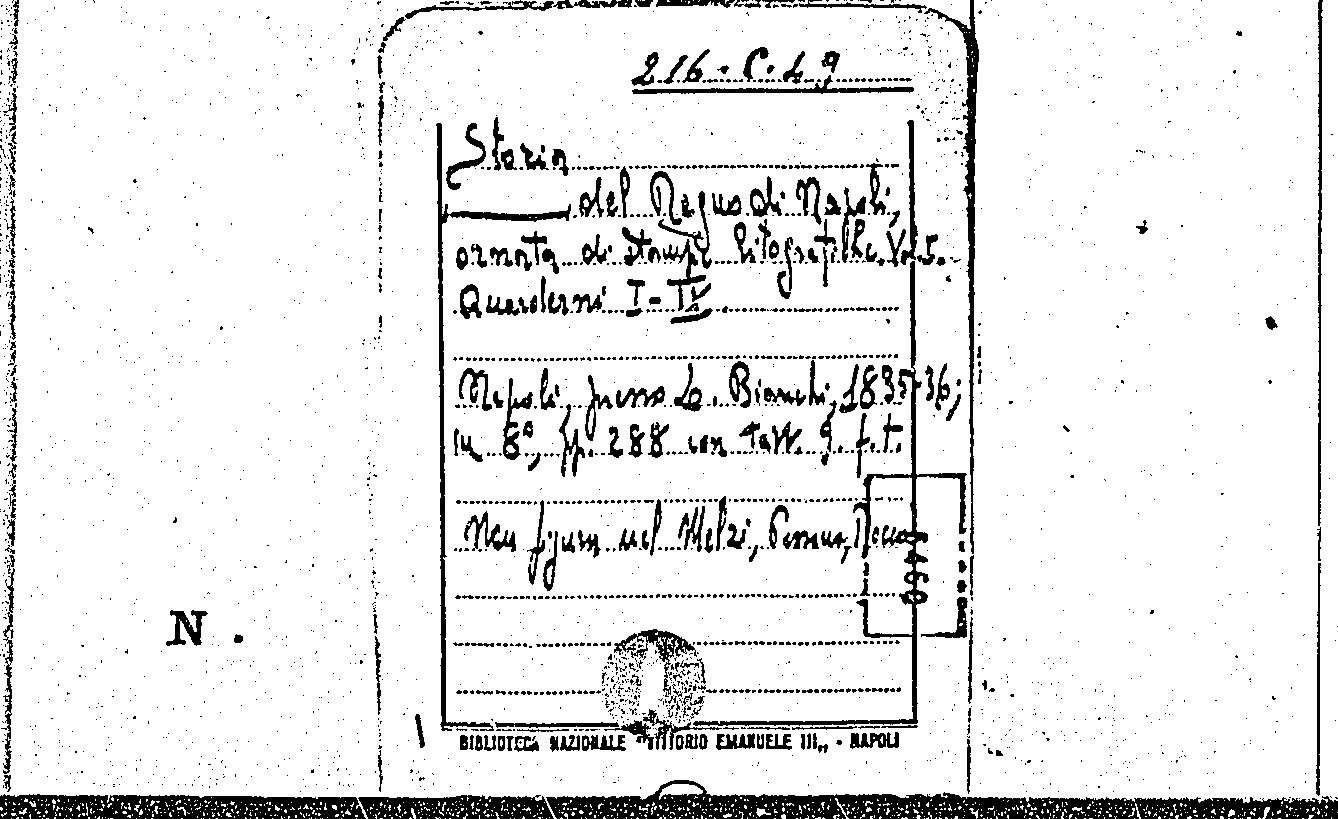 216.C.49
Storia
del Regno di Napoli,
ornata di stampe litografiche. Vol. 5.
Quaderni I-IV.
Napoli, presso Lo. Bianchi, 1835-36;
in 8°, pp. 288 con tavv. 9. f.t.
Non figura nel Melzi, Passano, Rocco
1460
N.
BIBLIOTECA NAZIONALE "VITTORIO EMANUELE III,, - NAPOLI